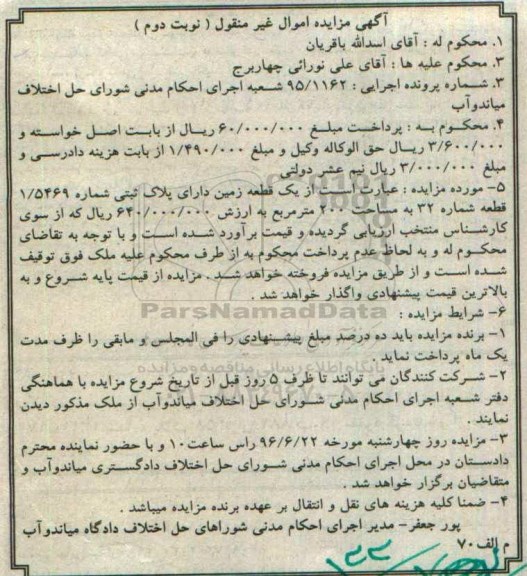 آگهی مزایده اموال غیر منقول ( نوبت دوم )
۱. محکوم له : آقای اسدالله باقریان
۳. محکوم علیه ها : آقای علی نورائی چهاربرج
۳. شماره پرونده اجرایی : ۹۵/۱۱۶۲ شعبه اجرای احکام مدنی شورای حل اختلاف
میاندوآب
۴. محکوم به : پرداخت مبلغ ۶۰/۰۰۰/۰۰۰ ریال از بابت اصل خواسته و
۳/۶۰۰/۰۰۰ ریال حق الوکاله وکیل و مبلغ ۱/۴۹۰/۰۰۰ از بابت هزینه دادرسی و
مبلغ ۳/۰۰۰/۰۰۰ ریال نیم عشر دولتی
۵- مورده مزایده : عبارت است از یک قطعه زمین دارای پلاک ثبتی شماره ۱/۵۴۶۹
قطعه شماره ۳۲ به مساحت ۲۰۰ مترمربع به ارزش ۶۴۰/۰۰۰/۰۰۰ ریال که از سوی
کارشناس منتخب ارزیابی گردیده و قیمت برآورد شده است و با توجه به تقاضای
محکوم له و به لحاظ عدم پرداخت محکوم به از طرف محکوم علیه ملک فوق توقیف
شده است و از طریق مزایده فروخته خواهد شد . مزایده از قیمت پایه شروع و به
بالاترین قیمت پیشنهادی واگذار خواهد شد .
ParsNamadData
۶- شرایط مزایده :
۱- برنده مزایده باید ده درصد مبلغ پیشنهادی را فی المجلس و مابقی را ظرف مدت
یک ماه پرداخت نماید .
پایگاه اطلاع رسانی مناقصه و مزایده
۲- شرکت کنندگان می توانند تا ظرف ۵ روز قبل از تاریخ شروع مزایده با هماهنگی
دفتر شعبه اجرای احکام مدنی شورای حل اختلاف میاندوآب از ملک مذکور دیدن
نمایند .
۳- مزایده روز چهارشنبه مورخه ۹۶/۶/۲۲ راس ساعت ۱۰ و با حضور نماینده محترم
دادستان در محل اجرای احکام مدنی شورای حل اختلاف دادگستری میاندوآب و
متقاضیان برگزار خواهد شد .
۴- ضمنا کلیه هزینه های نقل و انتقال بر عهده برنده مزایده میباشد .
پور جعفر- مدیر اجرای احکام مدنی شوراهای حل اختلاف دادگاه میاندوآب
م الف ۷۰